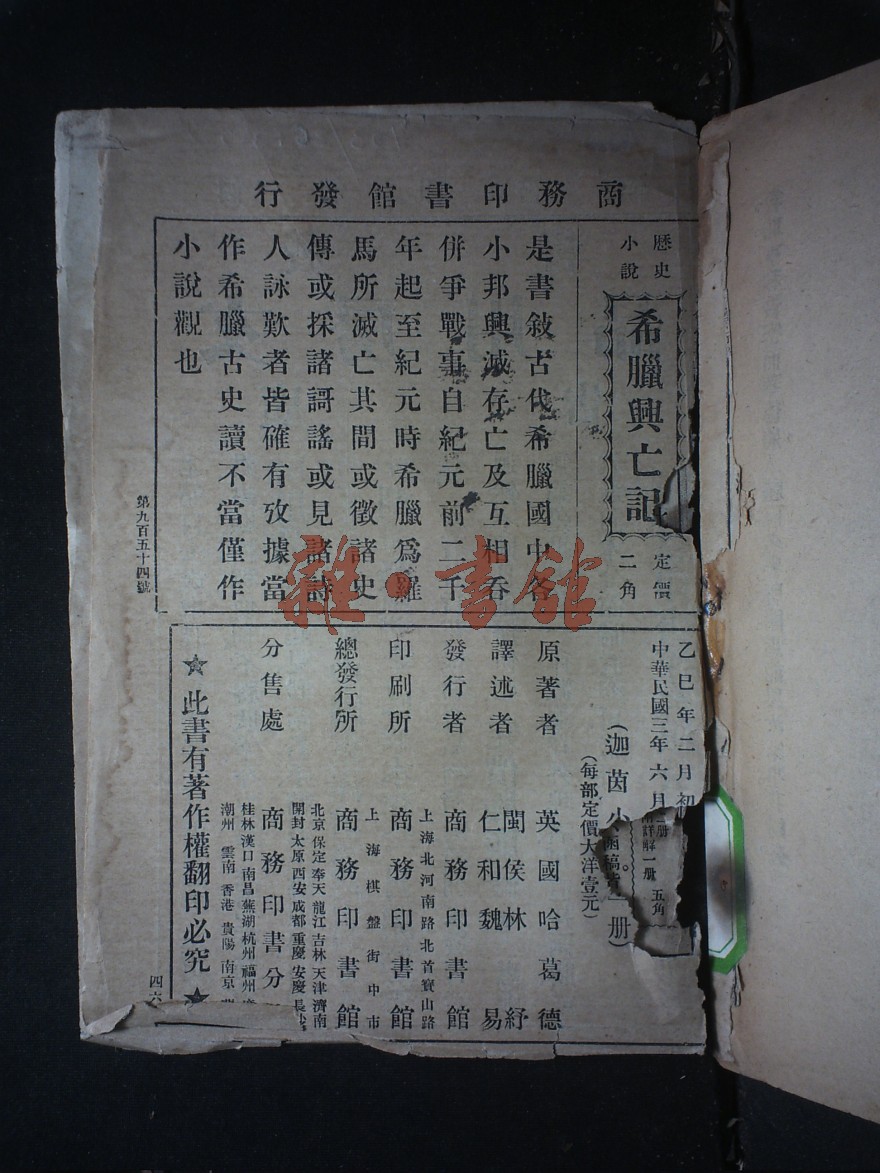 商務印書館發行
歷史小說
希臘興亡記
定價二角
是書敍古代希臘國中各
小邦興滅存亡及互相吞
併爭戰事自紀元前二千
年起至紀元時希臘爲羅
馬所滅亡其間或徵諸史
傳或採諸謌謠或見諸詩
人詠歎者皆確有攷據當
作希臘古史讀不當僅作
小說觀也
第九百五十四號
雜·書館
乙巳年二月初
中華民國三年六月
(迦茵小 册)
(每部定價大洋壹元)
原著者 英國哈葛德
譯述者 閩侯林紓
仁和魏易
發行者 商務印書館
上海北河南路北首寶山路
印刷所 商務印書館
上海棋盤街中市
總發行所 商務印書館
北京 保定 奉天 龍江 吉林 天津 濟南
開封 太原 西安 成都 重慶 安慶 長沙
分售處 商務印書分
桂林 漢口 南昌 蕪湖 杭州 福州
潮州 雲南 香港 貴陽 南京
★此書有著作權翻印必究★
四六
册
詳解一册 五角